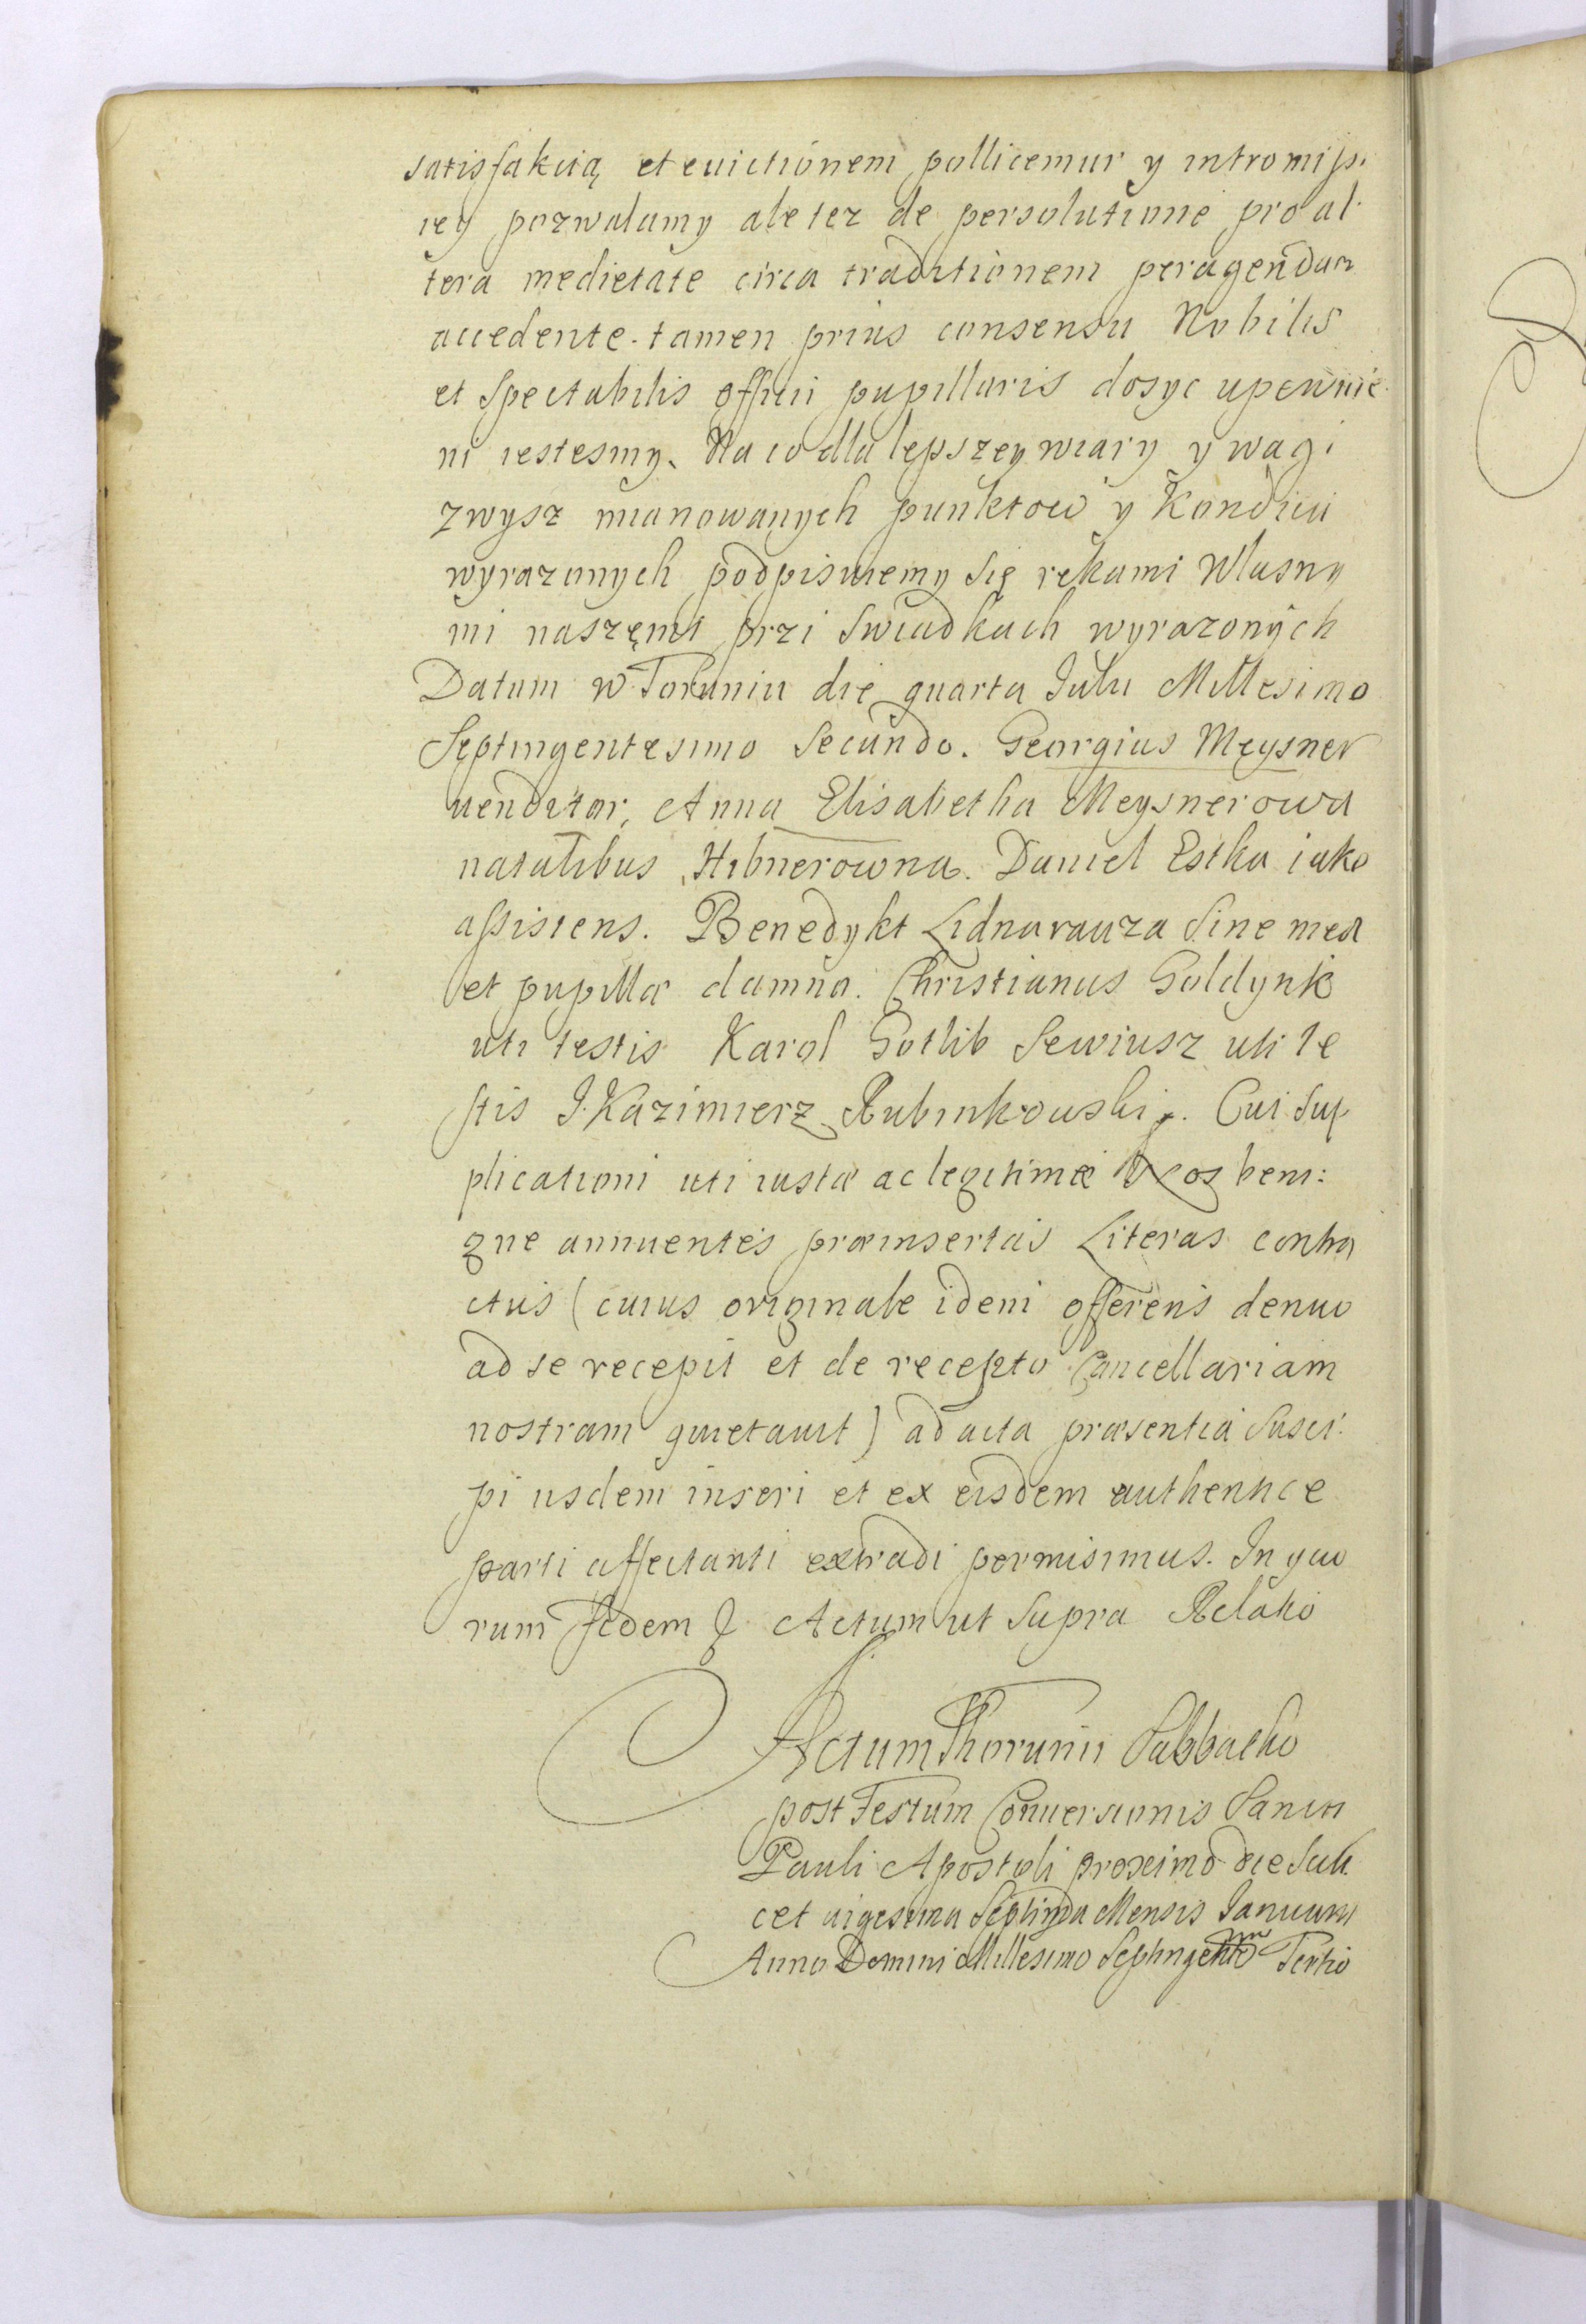 satisfakcią et euictionem pollicemur y intromiss.
iey pozwalamy ale tez de persolutione pro al-
tera medietate circa traditionem peragendam
accedente tamen prius consensu Nobilis
et Spectabilis officii pupillaris dosyc upewnie-
ni iestesmy. Na co dla lepszey wiary y wagi
zwysz mianowanych punktow y Kondicii
wyrazonych podpisuiemy Się rękami Wlasny
mi naszęmi przi Swiadkach wyrazonych
Datum w Toruniu die quarta Iulii Millesimo
Septingentesimo Secundo. Georgius Meysner
uenditor, Anna Elisabetha Meysnerowa
natalibus Hibnerowna. Daniel Estka iako
assistens. Benedykt Lidnarauza Sine mea
et pupillæ damno. Christianus Goldynk
uti testis Karol Gotlib Sewiusz uti te
stis J. Kazimierz Rubinkowski. Cui sup
plicationi uti iustæ ac legitimæ Nos beni:
gne annuentes præinsertas Literas contra
ctus (cuius originale idem offerens denuo
ad se recepit et de recepto Cancellariam
nostram quietauit) ad acta præsentia Susci-
pi iisdem inseri et ex eisdem authentice
parti affectanti extradi permisimus. In quo
rum fidem & Actum ut Supra Relatio
Actum Thorunii Sabbatho
post Festum Conuersionis Sancti
Pauli Apostoli proximo die Scili
cet uigesima Septima Mensis Ianuarii
Anno Domini Millesimo Septingentmo Tertio